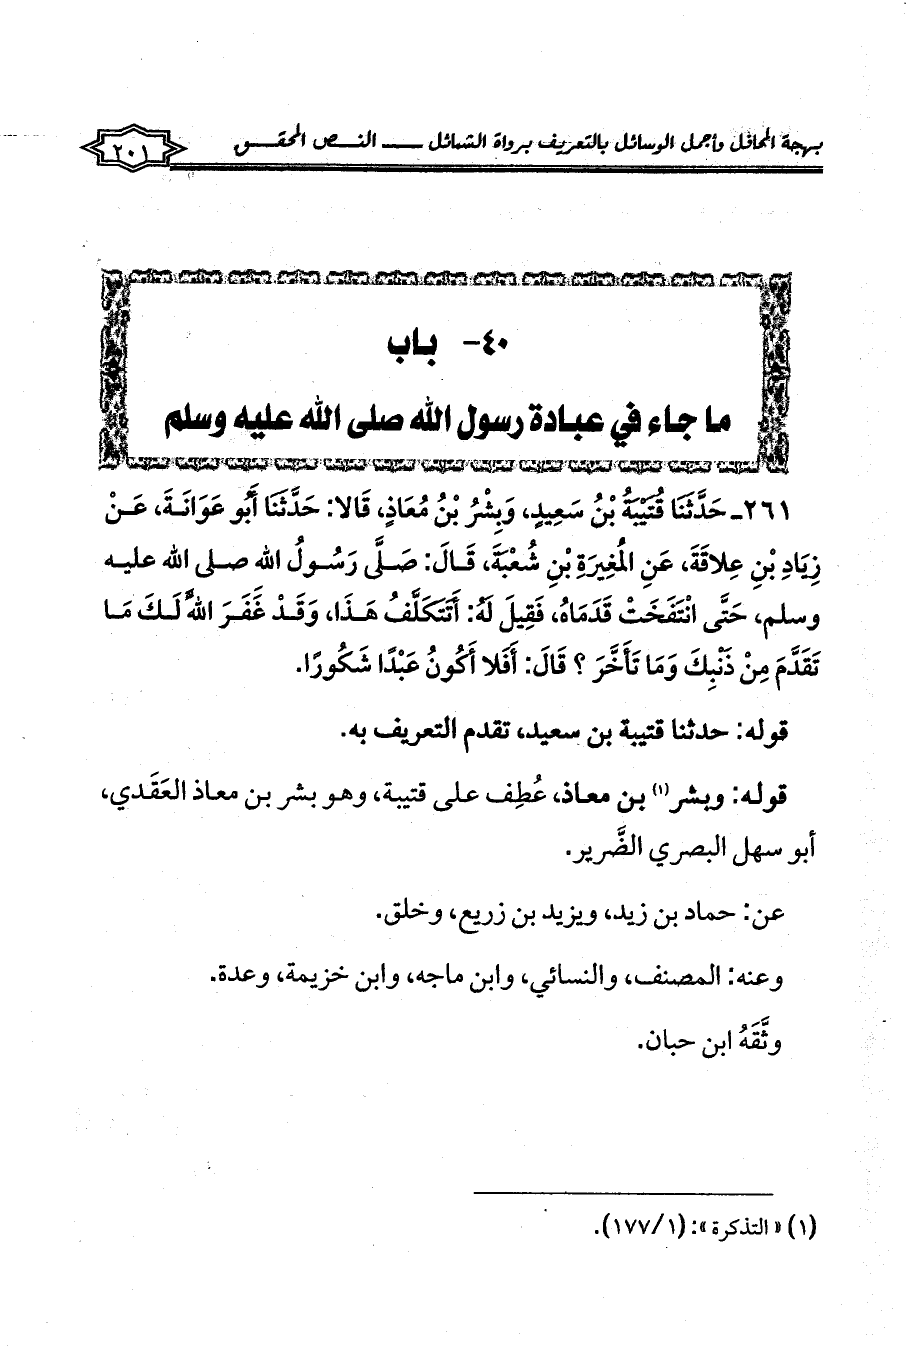 بهجة المحافل وأجمل الوسائل بالتعريف برواة الشمائل ـــ النص المحقق ٢٠١
٤٠- باب
ما جاء في عبادة رسول الله صلى الله عليه وسلم
٢٦١ـ حَدَّثَنَا قُتَيْبَةُ بْنُ سَعِيدٍ، وَبِشْرُ بْنُ مُعَاذٍ، قَالا: حَدَّثَنَا أَبُو عَوَانَةَ، عَنْ
زِيَادِ بْنِ عِلاقَةَ، عَنِ الْمُغِيرَةِ بْنِ شُعْبَةَ، قَالَ: صَلَّى رَسُولُ الله صلى الله عليه
وسلم، حَتَّى انْتَفَخَتْ قَدَمَاهُ، فَقِيلَ لَهُ: أَتَتَكَلَّفُ هَذَا، وَقَدْ غَفَرَ اللهُ لَكَ مَا
تَقَدَّمَ مِنْ ذَنْبِكَ وَمَا تَأَخَّرَ ؟ قَالَ: أَفَلا أَكُونُ عَبْدًا شَكُورًا.
قوله: حدثنا قتيبة بن سعيد، تقدم التعريف به.
قوله: وبشر(١) بن معاذ، عُطِف على قتيبة، وهو بشر بن معاذ العَقَدي،
أبو سهل البصري الضَّرير.
عن: حماد بن زيد، ويزيد بن زريع، وخلق.
وعنه: المصنف، والنسائي، وابن ماجه، وابن خزيمة، وعدة.
وثَّقَهُ ابن حبان.
(١) «التذكرة»: (١/١٧٧).